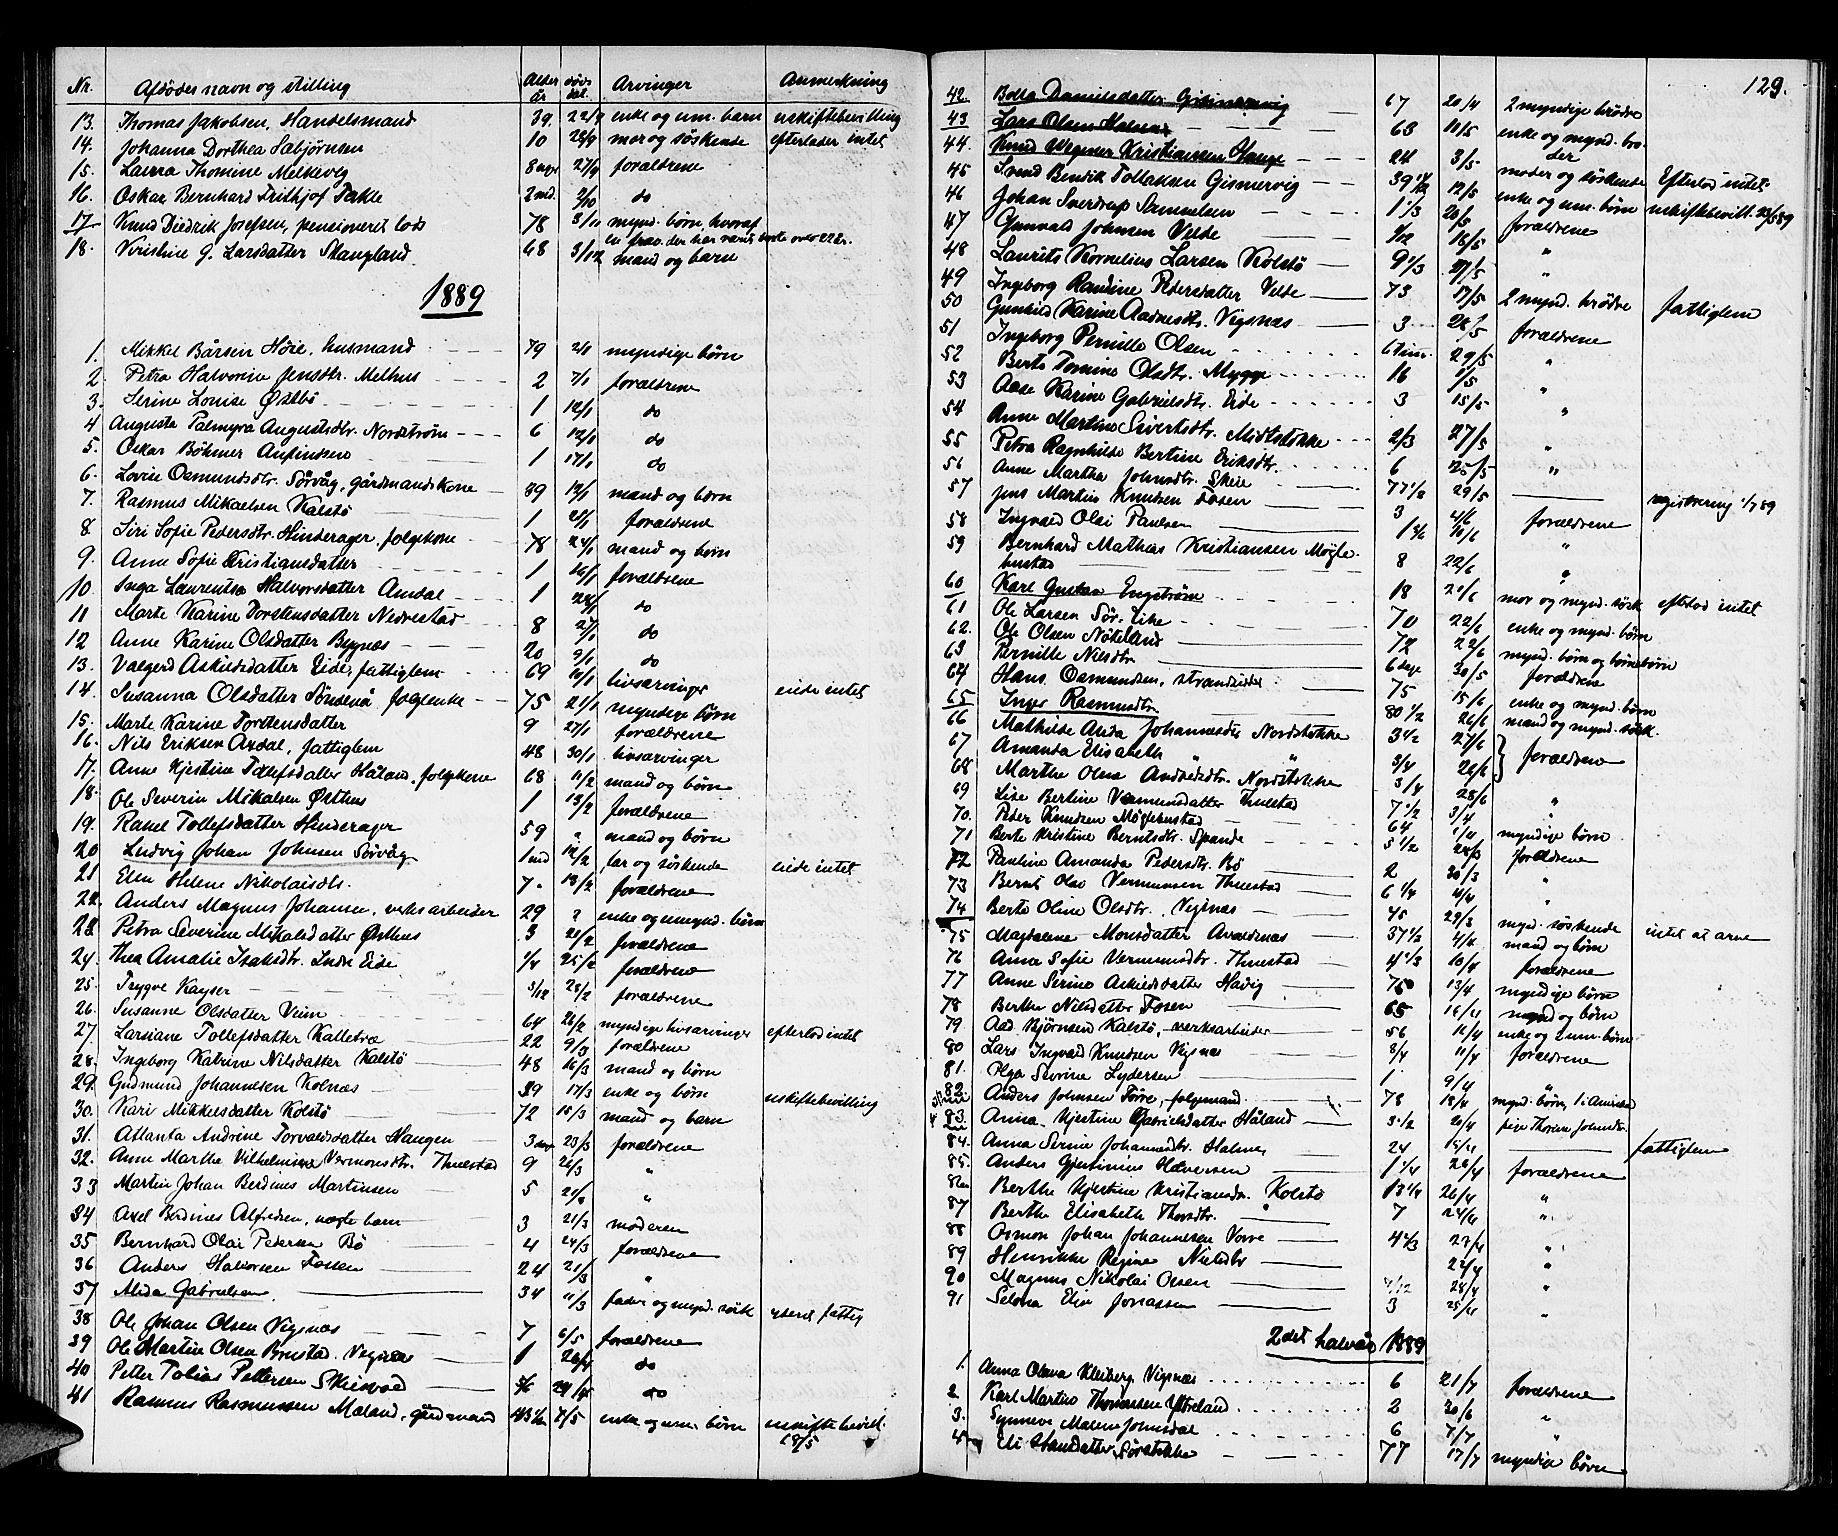 Nr. Afdødes navn og stilling Alder år døds dat. Arvinger Anmerkning
13. Thomas Jakobsen, Handelsmand 39. 22/9 enke og um. barn uskiftebevilling
14. Johanna Dorthea Sæbjørnsen 10 28/9 mor og søskende efterlader intet
15. Laura Thomine Melkevig 27/9 forældrene
16. Oskar Bernhard Frithjof Takle 2 md. 2/10 do
17 Knud Diedrik Josefsen, pensioneret lods 78 3/11 mynd. børn, hvoraf
en frav. der har været borte over 22 år.
18. Kristine G. Larsdatter Skangland 68 3/12 mand og barn
1889
1. Mikkel Bårsen Høie, husmand 79 2/1 myndige børn
2. Petra Halvorine Jensdtr. Melhus 2 7/1 forældrene
3. Serine Louise Østbø 1 12/1 do
4 Augusta Palmyra Augustsdtr. Nordstrøm 6 12/1 do
5. Oskar Bøhmer Anfindsen 1 17/1 do
6. Lovise Osmundsdtr. Sørvåg, gårdmandskone 39 12/1 mand og børn
7. Rasmus Mikaelsen Kalstø 1 forældrene
8 Siri Sofie Pedersdtr. Hinderager, folgekone 78 24/1 mand og børn
9. Anne Sofie Kristiansdatter 1 16/1 forældrene
10 Inga Laurentsa Halvorsdatter Amdal 1 28/1 do
11 Marte Karine Torstensdatter Nedrestad 8 27/1 do
12 Anne Karine Olsdatter Bygnæs 20 9/1 do
13. Valgerd Askildsdatter Eide, fattiglem 69 10/1 livsarvinger
14. Susanna Olsdatter Søndenå, folgenke 75 21/1 myndige børn eiede intet
15. Marte Karine Torstensdatter 9 27/1 forældrene
16. Nils Eriksen Axdal, fattiglem 48 30/1 livsarvinger
17. Anne Kjestine Tollefsdatter Håland, folgekone 68 11/2 mand og børn
18. Ole Severin Mikalsen Østhus 1 13/2 forældrene
19. Rakel Tollefsdatter Hinderager 59 " mand og børn
20 Ludvig Johan Johnsen Sørvåg 1 md 12/2 far og søskende eiede intet
21 Elen Helene Nikolaisdtr. 7. 18/2 forældrene
22. Anders Magnus Johansen, verksarbeider 29 ? enke og umynd. børn
23. Petra Severine Mikalsdatter Østhus 3 forældrene
24. Thea Amalie Isaksdtr. Indre Eide 1/4 25/2 forældrene
25. Trygve Kayser 3/12 28/2 forældrene
26. Susanne Olsdatter Veim 64 26/2 myndige livsarvinger efterlod intet
27. Larsiane Tollefsdatter Kalletvæ 22 9/3 forældrene
28. Ingeborg Katrine Nilsdatter Kalstø 48 16/3 mand og børn
29. Gudmund Johannesen Kolnæs 39 17/3 enke og børn uskiftebevilling
30. Kari Mikkelsdatter Kolstø 72 18/3 mand og barn
31. Atlanta Andrine Torvaldsdatter Haugen 3 23/3 forældrene
32. Anne Marthe Vilhelmine Vermonsdtr. Thuestad 9 26/3 "
33 Martin Johan Berdines Martinsen 5 "
34 Axel Berdines Alfredsen, uægte barn 3 21/3 moderen
35 Bernhard Olai Pedersen Bø 4 24/3 forældrene
36 Anders Halvorsen Fosen 24 21/3 "
37 Alida Gabrielsen 34 11/3 fader og mynd. søsk yderst fattig
38 Ole Johan Olsen Vigsnæs 7 6/5 forældrene
39 Ole Martin Olsen Brestad, Vegnæs 1 26/4 do
40 Peter Tobias Pettersen Skeisvold 5/6 do
41 Rasmus Rasmussen Meland, gårdmand 43 1/2 7/5 enke og um. børn uskiftebevill.
18/5
129.
42. Bolla Danielsdatter Gismervig 67 20/4 2 myndige brødre
43 Lars Olsen Halsnæs 68 11/5 enke og mynd. bro-
der
44. Knud Wegener Kristiansen Hauge 24 3/5 moder og søskende Efterlod intet
45 Svend Bendik Tollaksen Gismervig 39 12/5 enke og um. børn uskiftebevill. 23/5 89
46 Johan Sverdrup Samuelsen 1 1/3 20/5 forældrene
47 Gunvald Johnsen Velde 1/12 18/5 "
48 Laurits Kornelius Larsen Kolstø 9 1/3 27/5 "
49 Ingeborg Randine Pedersdatter Velde 73 17/5 2 mynd. brødre fattiglem
50 Gunhild Karine Aadnesdtr. Vigsnæs 3 28/5 forældrene
51 Ingeborg Pernille Olsen 29/5 "
52 Berte Tomine Olsdtr. Mygge 16 1/5 "
53 Aase Karine Gabrielsdtr. Eide 3 15/5 "
54 Anne Martine Sivertsdtr. Midtstokke 2/3 27/5 "
55 Petra Ragnhilde Bertine Eriksdtr. 6 25/5 "
56 Anne Martha Johnsdtr. Skeie 77 1/2 29/5 registrering 1/7 89
57 Jens Martin Knudsen Fosen 3 4/6 forældrene
58 Ingvald Olai Paulsen 1 5/6 10/6 "
59 Bernhard Mathias Kristiansen Møgle-
hustad 8 22/6 "
60 Karl Gustav Engstrøm 18 21/6 mor og mynd. søsk efterlod intet
61 Ole Larsen Sør. Eike 70 22/6 enke og mynd. børn
62. Ole Olsen Nøteland 72 22/6 mynd. børn og børnebørn
63 Pernille Nilsdtr. 6 dage 30/5 forældrene
64 Hans Osmundsen, strandsidder 75 15/6 enke og mynd. børn
65 Inger Rasmusdtr. 80 1/2 26/6 mand og mynd. søsk.
66 Mathilde Anda Johannesdtr Nordstokke 3 1/2 27/6 } forældrene
67 Amanda Elisabeth " 3/4 26/6
68 Marthe Olene Andreasdtr. Nordstokke 3/4 28/6 "
69 Lise Bertine Vermunsdatter Thuestad 7 1/2 3/4
70. Peder Knudsen Møglehustad 64 1/4 myndige børn
71 Berte Kristine Berntsdtr. Spande 5 1/2 forældrene
72 Pauline Amanda Pedersdtr. Bø 2 20/3 "
73 Bernt Olav Vermunsen Thuestad 6 1/4 4/4 "
74 Berte Oline Olsdtr. Vigsnæs 45 29/3 mynd. søskende intet at arve
75 Magdalene Monsdatter Avaldsnæs 37 1/2 4/4 mand og børn
76 Anna Sofie Vermunsdtr. Thuestad 4 1/3 10/4 forældrene
77 Anne Serine Askildsdatter Håvig 75 13/4 myndige børn
78 Berthe Nilsdatter Fosen 65 16/4 mynd og børn
79 Aad Bjørnsen Kalstø, verksarbeider 56 12/4 enke og 2 um. børn
80 Lars Ingvald Knudsen Vigsnæs 3/4 11/4 forældrene
81. Olga Severine Lydersen 1 9/4 "
82. Anders Johnsen Førre, folgemand 78 18/4 mynd. børn, 1 i Amerika
83. Anna Kjerstine Gabrielsdatter Håland 3 1/2 20/4
84. Anna Serine Johannesdtr. Halnes 24 15/4 fattiglem
85. Anders Gjertinius Halvorsen 1 1/4 26/4 forældrene
86 Berthe Kjerstine Kristiansdtr. Kolstø 13 1/4 26/4 "
87 Berthe Elisabeth Thorsdtr. " 7 24/4 "
88 Osmon Johan Johannesen Vorre 4 1/3 23/4 "
89 Henrikke Regine Nielsdtr 22/4 "
90 Magnus Nikolai Olsen 28/4 "
91 Selona Elise Jonassen 3 25/4 "
2det halvår 1889
1. Anna Olava Kleiberg Vigsnæs 6 21/7 forældrene
2 Karl Martin Thomassen Ytreland 2 20/6 "
3. Synneve Malene Johnsdal 6 7/7 "
4 Eli Hansdatter Sørstokke 77 17/7 myndige børn